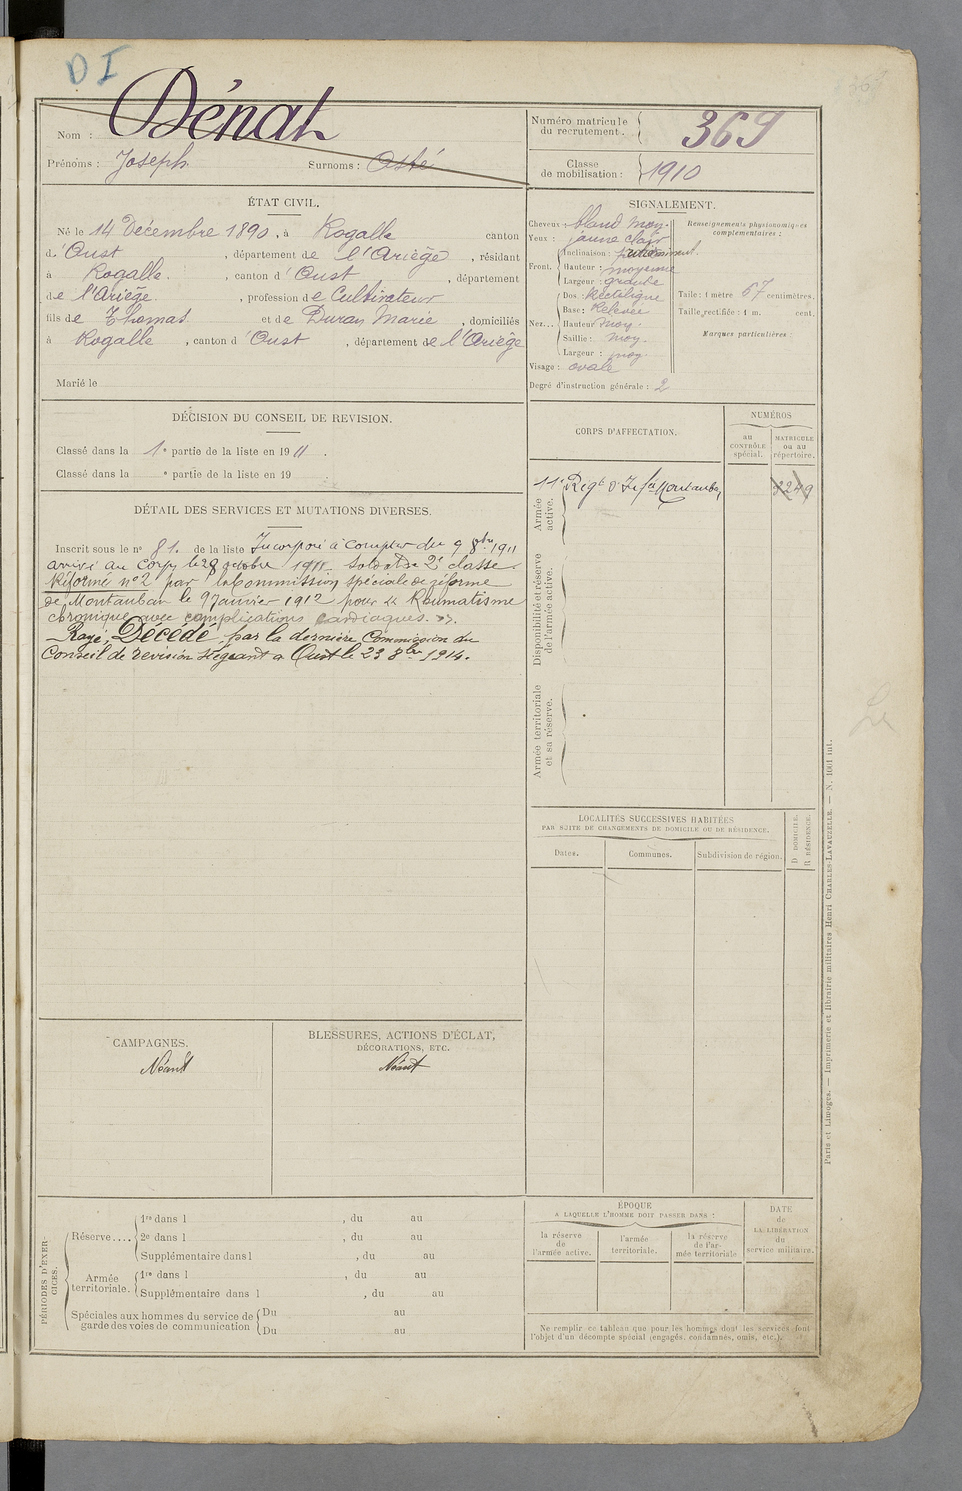 D I
Nom : Dénat
Prénoms : Joseph Surnoms : Osté
Numéro matricule du recrutement. 369
Classe de mobilisation : 1910
ÉTAT CIVIL.
Né le 14 Décembre 1890, à Rogalle canton
d'Oust , département de l'Ariège , résidant
à Rogalle , canton d'Oust , département
de l'Ariège , profession de Cultivateur
fils de Thomas et de Duran Marie , domiciliés
à Rogalle , canton d'Oust , département de l'Ariège
Marié le
SIGNALEMENT.
Cheveux : blond moy.
Yeux : jaune clair
Front. Inclinaison :
Hauteur : moyenne
Largeur : grande
Nez... Dos : Rectiligne
Base : Relevée
Hauteur moy.
Saillie : moy.
Largeur : moy.
Visage : ovale
Degré d'instruction générale : 2
Renseignements physionomiques complémentaires :
Taille : 1 mètre 67 centimètres.
Taille rectifiée : 1 m. cent.
Marques particulières :
DÉCISION DU CONSEIL DE REVISION.
Classé dans la 1e partie de la liste en 1911.
Classé dans la e partie de la liste en 19
DÉTAIL DES SERVICES ET MUTATIONS DIVERSES.
Inscrit sous le n° 81. de la liste Incorporé à compter du 9 8bre 1911
arrivé au corps le 28 octobre 1911. Soldat de 2e classe.
Réformé n°2 par la Commission spéciale de réforme
de Montauban le 9 Janvier 1912 pour « Rhumatisme
chronique avec complications cardiaques. »
Rayé, Décédé, par la dernière Commission du
Conseil de revision siégeant à Oust le 23 8bre 1914.
CORPS D'AFFECTATION.
NUMÉROS
au CONTRÔLE spécial.
MATRICULE ou au répertoire.
Armée active.
11e Régt d'Infie Montauban
Disponibilité et réserve de l'armée active.
Armée territoriale et sa réserve.
LOCALITÉS SUCCESSIVES HABITÉES
PAR SUITE DE CHANGEMENTS DE DOMICILE OU DE RÉSIDENCE.
Dates. Communes. Subdivision de région.
D DOMICILE.
R RÉSIDENCE.
CAMPAGNES.
Néant
BLESSURES, ACTIONS D'ÉCLAT,
DÉCORATIONS, ETC.
Néant
PÉRIODES D'EXERCICES.
Réserve.... 1re dans l , du au
2e dans l , du au
Supplémentaire dans l , du au
Armée territoriale. 1re dans l , du au
Supplémentaire dans l , du au
Spéciales aux hommes du service de garde des voies de communication Du au
Du au
ÉPOQUE
A LAQUELLE L'HOMME DOIT PASSER DANS :
la réserve de l'armée active.
l'armée territoriale.
la réserve de l'armée territoriale
DATE de LA LIBÉRATION du service militaire.
Ne remplir ce tableau que pour les hommes dont les services font
l'objet d'un décompte spécial (engagés, condamnés, omis, etc.).
Paris et Limoges. — Imprimerie et librairie militaires Henri CHARLES-LAVAUZELLE. — N. 1061 int.